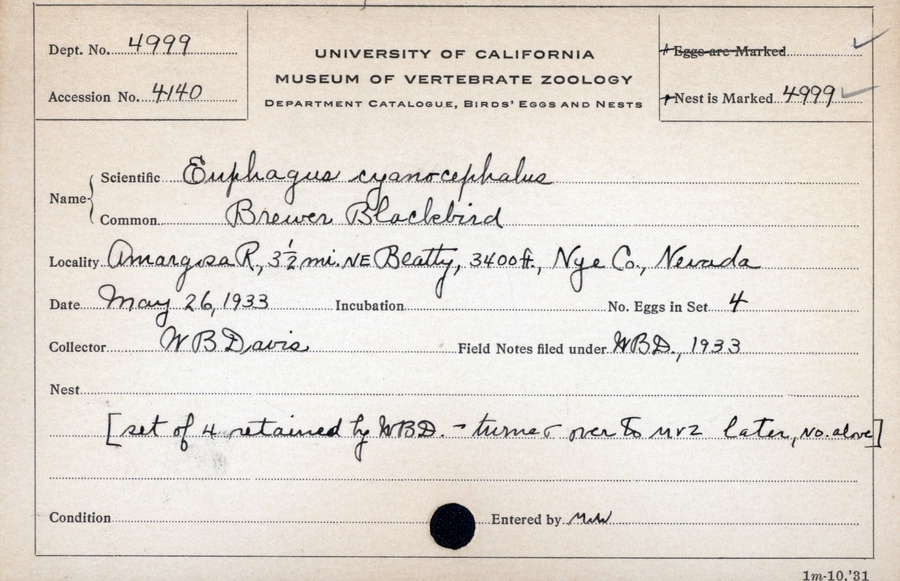 Dept. No. 4999
Accession No. 4140
UNIVERSITY OF CALIFORNIA
MUSEUM OF VERTEBRATE ZOOLOGY
DEPARTMENT CATALOGUE, BIRDS' EGGS AND NESTS
Eggs are Marked
Nest is Marked 4999
Name
Scientific Euphagus cyanocephalus
Common Brewer Blackbird
Locality Amargosa R., 3½ mi. NE Beatty, 3400 ft., Nye Co., Nevada
Date May 26, 1933 Incubation No. Eggs in Set 4
Collector W B Davis Field Notes filed under WBD., 1933
Nest
[set of 4 retained by WBD. - turned over to MVZ later, no. above]
Condition Entered by
1m-10,'31